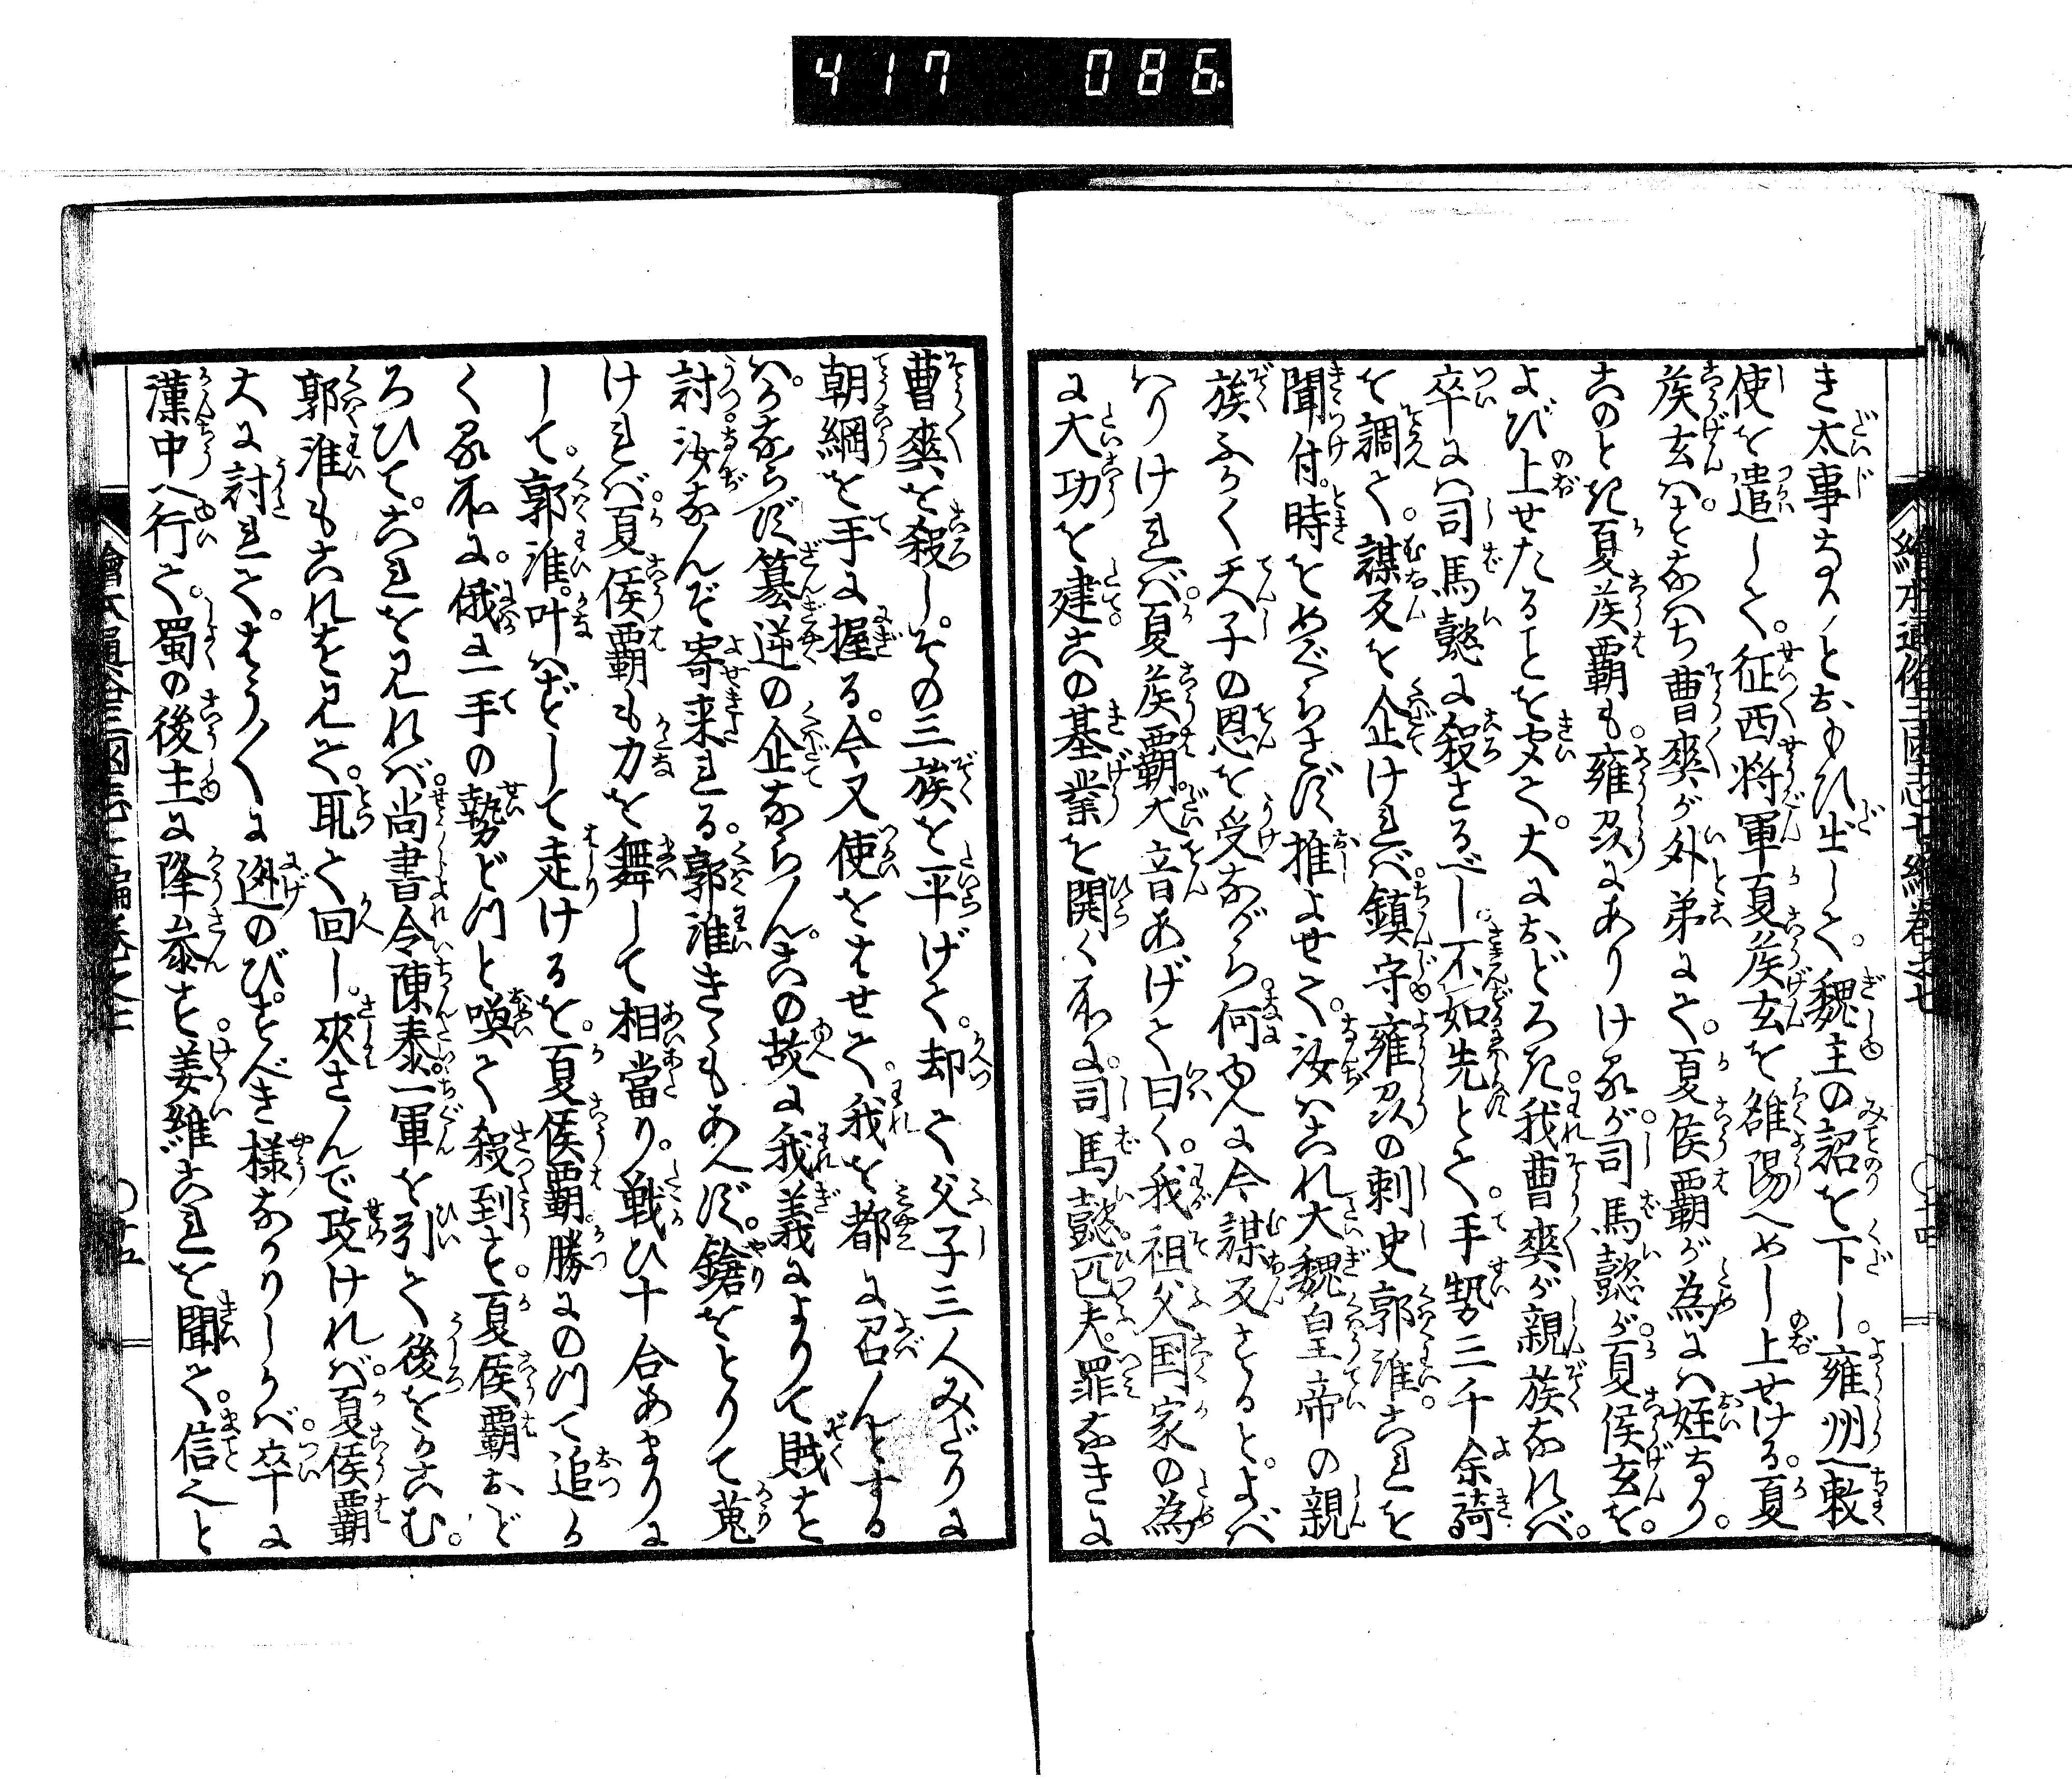 417 086
繪本通俗三國志七編巻之七
き太事なりとおもひ出して。魏主の詔を下し。雍州へ敕
使を遣して。征西将軍夏侯玄を雒陽へめし上せける。夏
侯玄ハ。すなハち曹爽が外弟にて。夏侯覇が為にハ姪なり。
このとき夏侯覇も。雍州にありけるが司馬懿が。夏侯玄を。
よび上せたることを聞て。大におどろき。我曹爽が親族なれバ。
卒にハ司馬懿に殺さるべし。不如先とて。手勢三千余騎
を調て。謀反を企けれバ。鎮守雍州の刺史郭淮。これを
聞付。時をめぐらさず推よせて。汝ハこれ大魏皇帝の親
族ふかく天子の恩を受ながら。何ゆへに今謀反するとよバ
ハりけれバ。夏侯覇。大音あげて曰く。我祖父国家の為
に大功を建。この基業を開く所に。司馬懿匹夫。罪なきに
曹爽を殺し。その三族を平げて。却て父子三人みだりに
朝綱を手に握る。今又使をはせて。我を都に召んとする
ハ。かならず簒逆の企ならん。この故に我義によりて賊を
討。汝なんぞ寄来れる。郭淮きゝもあへず。鎗をとりて蒐
けれバ。夏侯覇も力を舞して相當り。戦ひ十合あまりに
して。郭淮。叶ハずして走けるを。夏侯覇。勝にのつて追か
く る所に。俄に一手の勢どつと喚て殺到す。夏侯覇おど
ろひて。これを見れバ。尚書令陳泰。一軍を引て後をかこむ。
郭淮もこれを見て。取て回し。夾さんで攻けれバ。夏侯覇
大に討れて。はう〳〵に迯のび。すべき様なかりしかバ。卒に
漢中へ行て。蜀の後主に降参す。姜維これを聞て。信へと